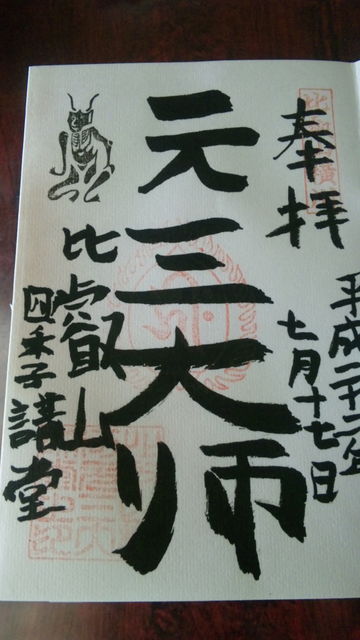 奉拝
平成二十二年
七月十七日
元三大师
比叡山
四季講堂